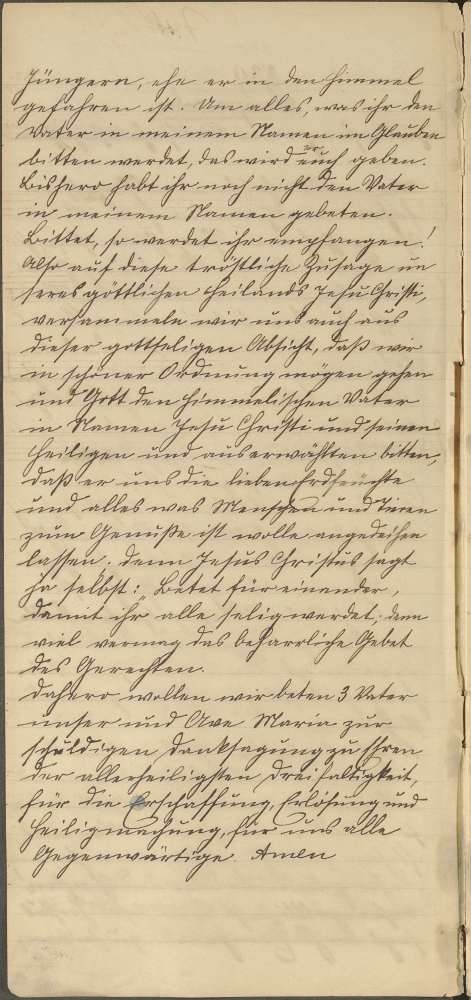 Jüngern, ehe er in den Himmel
gefahren ist. Um alles, was ihr den
Vater in meinem Namen im Glauben
bitten werdet, das wird er euch geben.
Bishero habt ihr noch nicht den Vater
in meinem Namen gebeten.
Bittet, so werdet ihr empfangen!
Also auf diese tröstliche Zusage un
seres göttlichen Heilands Jesu Christi,
versammeln wir uns auch aus
dieser gottseligen Absicht, daß wir
in schöner Ordnung mögen gehen
und Gott den himmelischen Vater
in Namen Jesu Christi und seinen
Heiligen und auserwählten bitten,
daß er uns die lieben Erdfrüchte
und alles was Menschen und Tieren
zum Genuße ist wolle angedeihen
lassen. Denn Jesus Christus sagt
ja selbst: „Betet für einander,
damit ihr alle selig werdet; denn
viel vermag das beharrliche Gebet
des Gerechten.
Dahero wollen wir beten 3 Vater
unser und Ave Maria zur
schuldigen Danksagung zu Ehren
der allerheiligsten Dreifaltigkeit,
für die Erschaffung, Erlösung und
Heiligmachung, für uns alle
Gegenwärtige. Amen